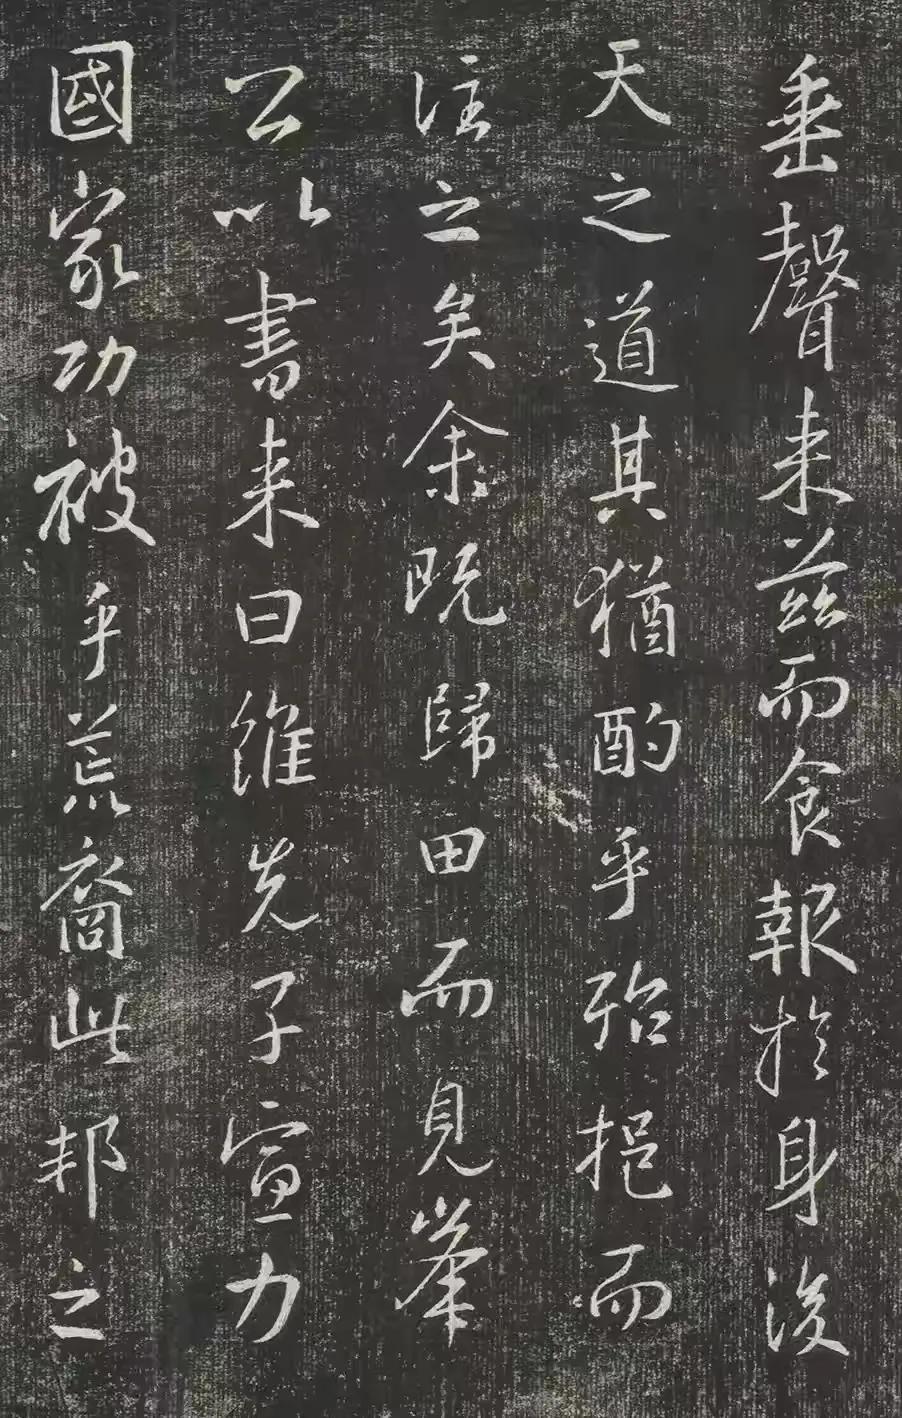 垂聲來兹而食報於身後
天之道其猶酌乎殆挹而
注之矣余既歸田而見峯
公以書来曰維先子宣力
國家功被乎荒裔此邦之